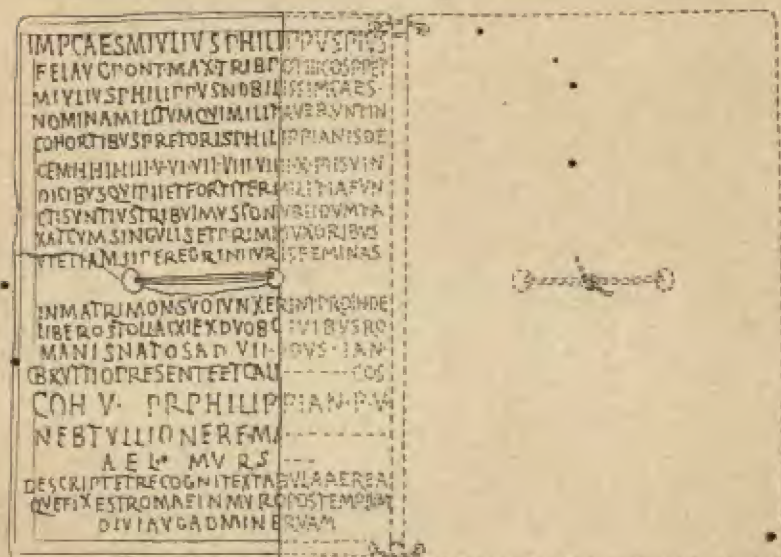 IMPCAESMIVLIVSPHILIPPVSPIVS
FELAVGPONT·MAXTRIBPOTIIICOSPPET
MIVLIVSPHILIPPVSNOBILISSIMCAES·
NOMINAMILITVMQVIMILITAVERVNTIN
COHORTIBVSPRETORISPHILIPPIANISDE
DICIBVSQVIPIIETFORTITERMILITIAFVN
CTISVNTIVSTRIBVIMVSCONVBIIDVMTA
XATCVMSINGVLISETPRIMISVXORIBVS
VTETIAMSIPEREGRINIIVRISFEMINAS
INMATRIMONSVOIVNXERINTPROINDE
LIBEROSTOLLATXIEXDVOBCIVIBVSRO
MANISNATOSAD VII·IDVS·IAN
CBRVTTIOPRESENTEETCALI------COS
COH V· PRPHILIPPIAN·P·V
NEBTVLLIONEREMA------
AEL· MVRS----
DESCRIPTETRECOGNITEXTABVLAAEREA
QVEFIXESTROMAEINMVROPOSTEMPLVM
DIVIAVGADMINERVAM